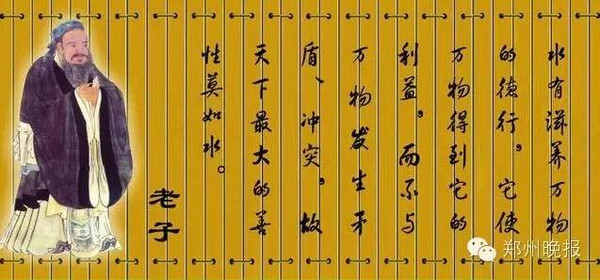 水有滋养万物
的德行，它使
万物得到它的
利益，而不与
万物发生矛
盾、冲突，故
天下最大的善
性莫如水。
老子
郑州晚报